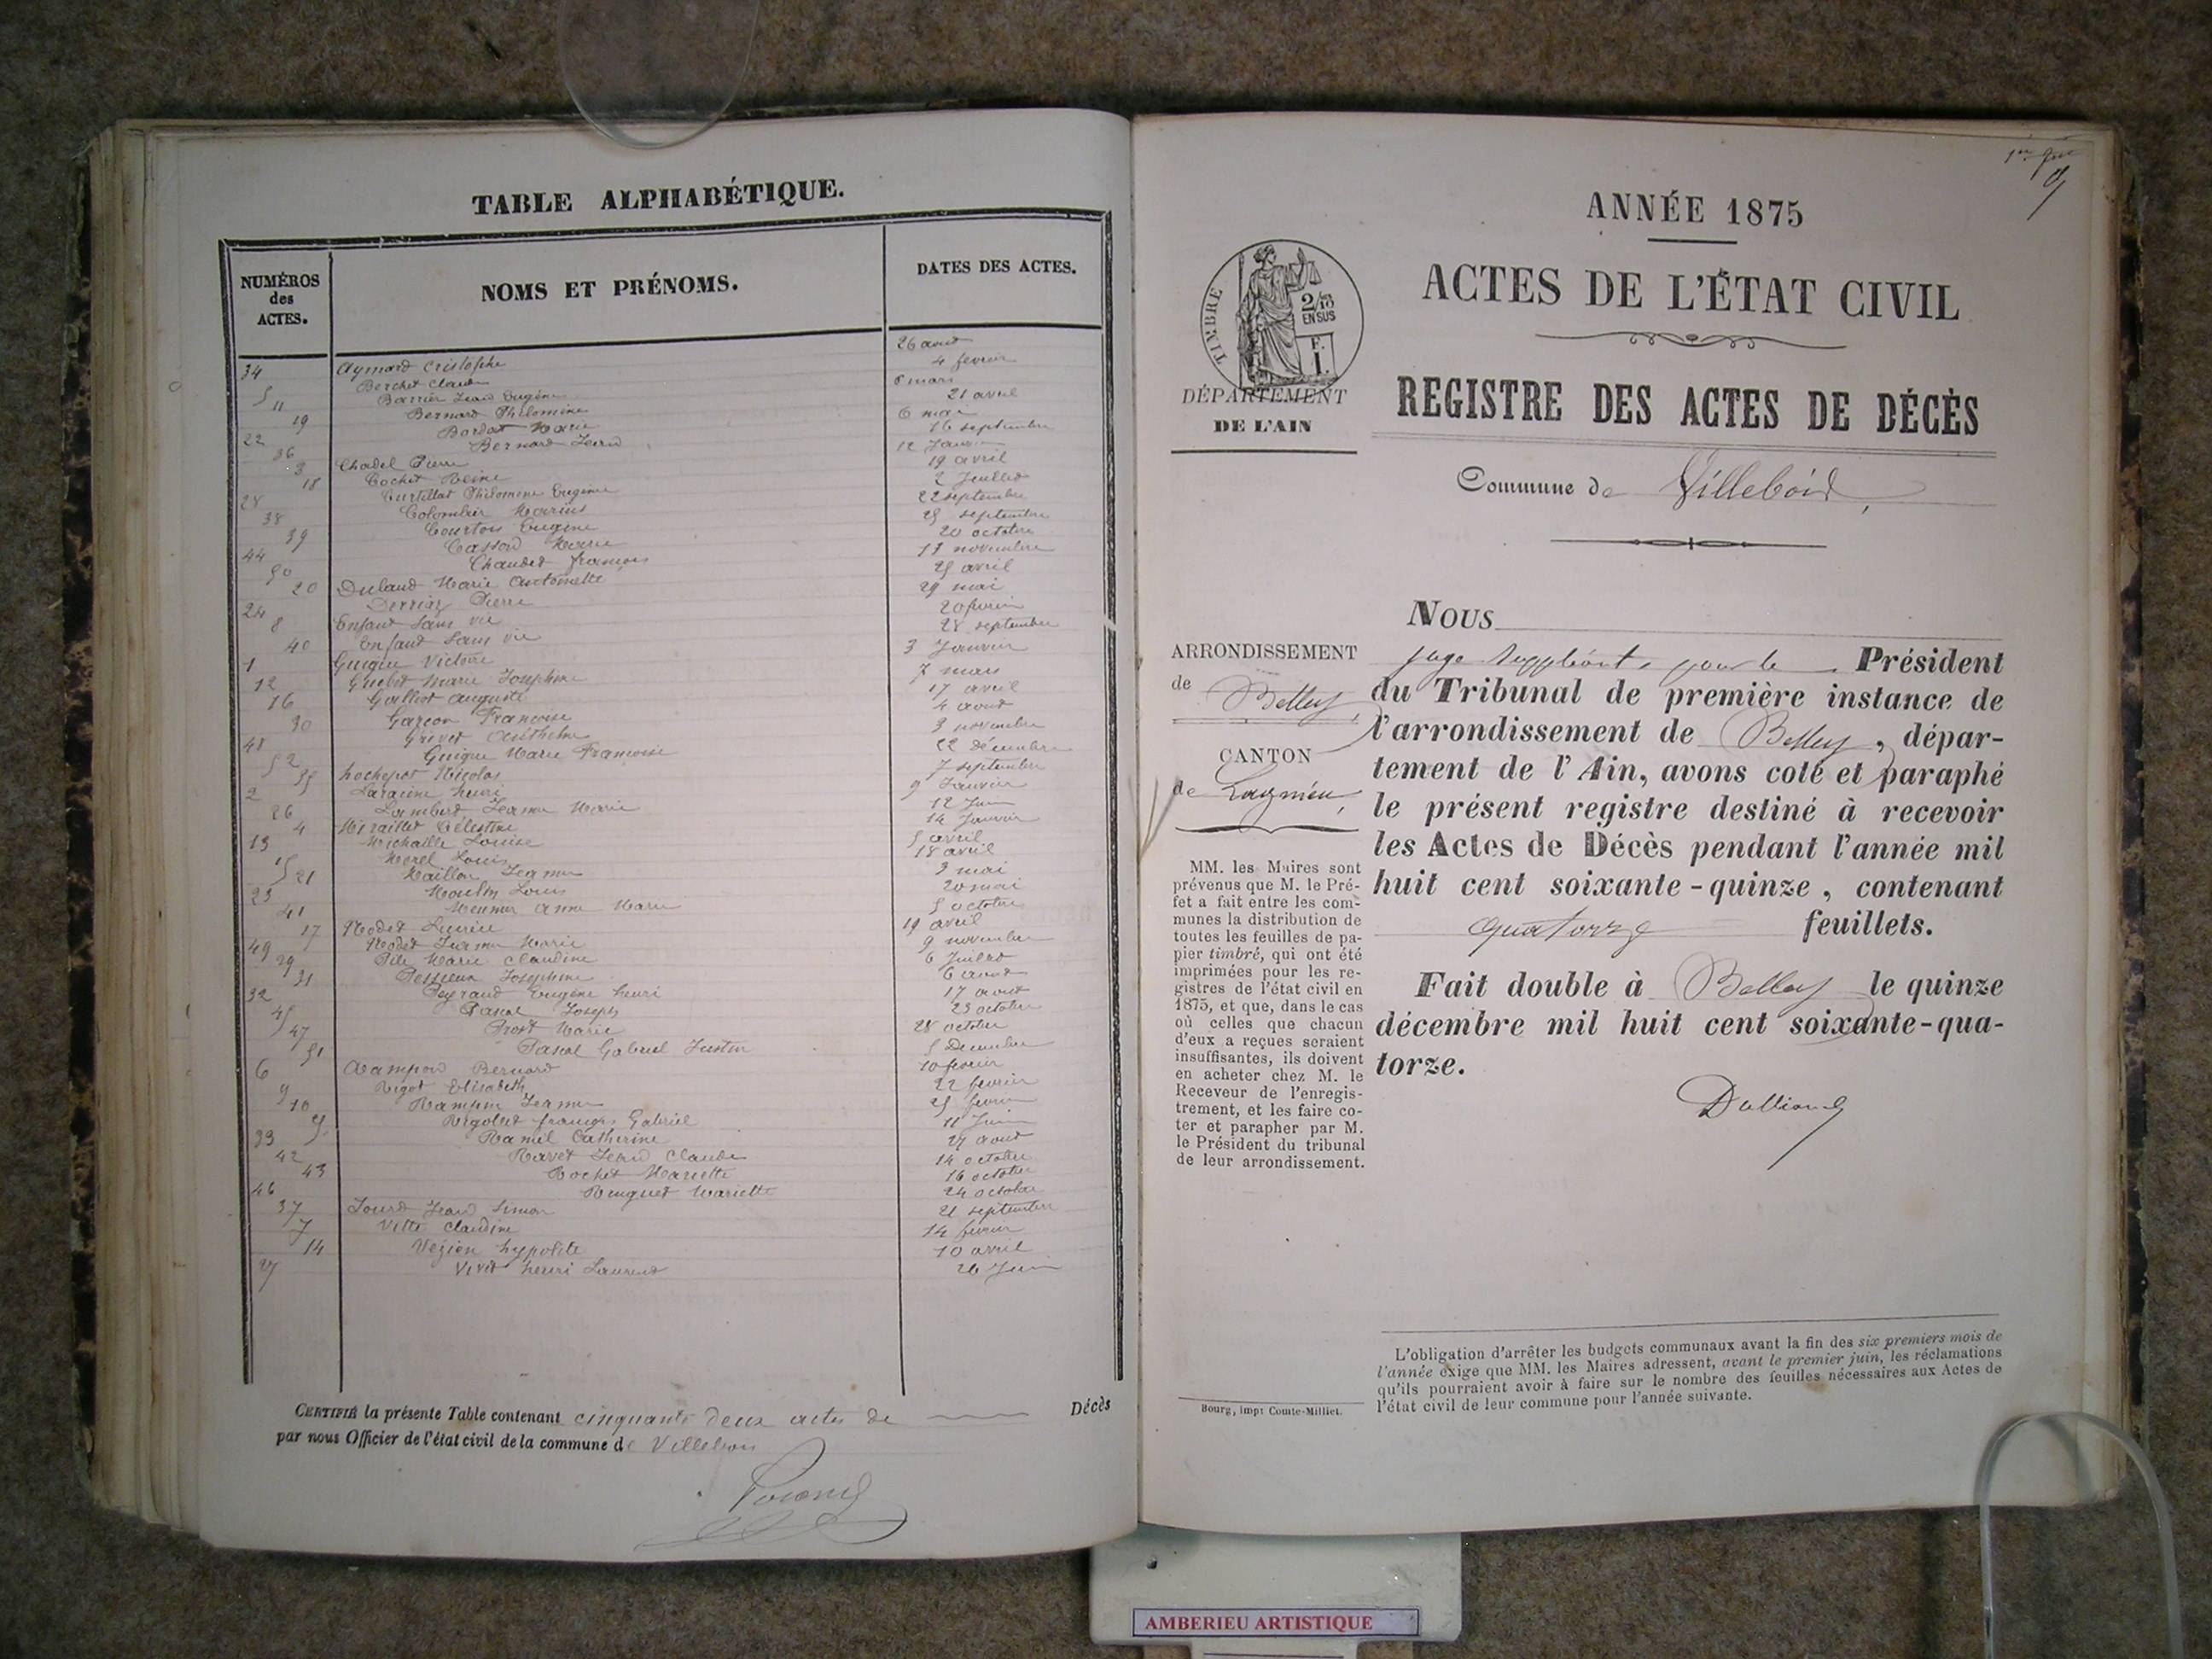 TABLE ALPHABÉTIQUE.
NUMÉROS des ACTES.
NOMS ET PRÉNOMS.
DATES DES ACTES.
34 Aymard Cristophe 26 aout
5 Berchet Claude 4 fevrier
11 Barrier Jean Eugène 8 mars
19 Bernard Philomène 21 avril
22 Bordat Marie 6 mai
36 Bernard Jean 16 septembre
3 Chadel Pierre 12 Janvier
18 Cochet Reine 19 avril
28 Curtillat Philomene Eugénie 2 Juillet
38 Colombier Marius 22 septembre
39 Courtois Eugène 25 septembre
44 Casson Marie 20 octobre
50 Chaudet françois 17 novembre
20 Dulaud Marie Antoinette 25 avril
24 Derriaz Pierre 29 mai
8 Enfant sans vie 20 fevrier
40 Enfant sans vie 28 septembre
1 Guigue Victoire 3 Janvier
12 Guebet Marie Josephine 7 mars
16 Gallect auguste 17 avril
30 Garçon Francoise 4 aout
48 Grivet Anthelme 3 novembre
52 Guigue Marie Francoise 22 décembre
35 hochepot Nicolas 7 septembre
2 Laracine henri 9 Janvier
26 Lambert Jeanne Marie 12 Juin
4 Miraillet Célestine 14 Janvier
13 Michaille Louise 5 avril
15 Morel Louis 18 avril
21 Maillon Jeanne 3 mai
23 Moulin Louis 20 mai
41 Meunier Anne Marie 5 octobre
17 Nodet Lucrèce 19 avril
49 Nodet Jeanne Marie 9 novembre
29 Pile Marie Claudine 6 Juillet
31 Pessieux Josephine 6 aout
32 Peyraud Eugène henri 17 aout
45 Pascal Joseph 23 octobre
47 Prost Marie 28 octobre
51 Pascal Gabriel Justin 5 Decembre
6 Rampon Bernard 10 fevrier
9 Rigot Elisabeth 22 fevrier
10 Rampin Jeanne 25 fevrier
25 Rigollet françois Gabriel 11 Juin
33 Ramel Catherine 24 aout
42 Ravet Jean Claude 14 octobre
43 Rochet Mariette 16 octobre
46 Ringuet Mariette 24 octobre
37 Sourd Jean Simon 21 septembre
7 Vitte Claudine 14 fevrier
14 Vezien hypolite 10 avril
27 Vivet henri Laurent 26 Juin
CERTIFIÉ la présente Table contenant cinquante deux actes de Décès
par nous Officier de l'état civil de la commune de Villebois
ANNÉE 1875
ACTES DE L'ÉTAT CIVIL
REGISTRE DES ACTES DE DÉCÈS
TIMBRE
2/10 EN SUS
F. 1.
DÉPARTEMENT
DE L'AIN
Commune de Villebois
ARRONDISSEMENT
de Belley
CANTON
de Lagnieu
MM. les Maires sont
prévenus que M. le Pré-
fet a fait entre les com-
munes la distribution de
toutes les feuilles de pa-
pier timbré, qui ont été
imprimées pour les re-
gistres de l'état civil en
1875, et que, dans le cas
où celles que chacun
d'eux a reçues seraient
insuffisantes, ils doivent
en acheter chez M. le
Receveur de l'enregis-
trement, et les faire co-
ter et parapher par M.
le Président du tribunal
de leur arrondissement.
NOUS
juge suppléant, pour le Président
du Tribunal de première instance de
l'arrondissement de Belley, dépar-
tement de l'Ain, avons coté et paraphé
le présent registre destiné à recevoir
les Actes de Décès pendant l'année mil
huit cent soixante-quinze, contenant
quatorze feuillets.
Fait double à Belley le quinze
décembre mil huit cent soixante-qua-
torze.
L'obligation d'arrêter les budgets communaux avant la fin des six premiers mois de
l'année exige que MM. les Maires adressent, avant le premier juin, les réclamations
qu'ils pourraient avoir à faire sur le nombre des feuilles nécessaires aux Actes de
l'état civil de leur commune pour l'année suivante.
Bourg, impr Comte-Milliet.
AMBERIEU ARTISTIQUE